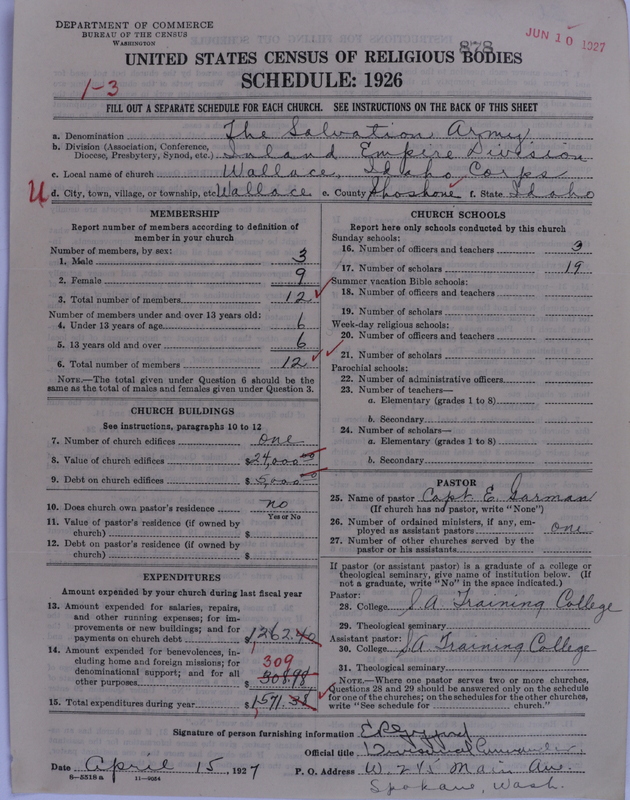 DEPARTMENT OF COMMERCE
BUREAU OF THE CENSUS
WASHINGTON
878
JUN 10 1927
UNITED STATES CENSUS OF RELIGIOUS BODIES
SCHEDULE: 1926
1-3
FILL OUT A SEPARATE SCHEDULE FOR EACH CHURCH. SEE INSTRUCTIONS ON THE BACK OF THIS SHEET
a. Denomination The Salvation Army
b. Division (Association, Conference, Diocese, Presbytery, Synod, etc.) Inland Empire Division
c. Local name of church Wallace, Idaho Corps
U d. City, town, village, or township, etc. Wallace e. County Shoshone f. State Idaho
MEMBERSHIP
Report number of members according to definition of member in your church
Number of members, by sex:
1. Male 3
2. Female 9
3. Total number of members 12
Number of members under and over 13 years old:
4. Under 13 years of age 6
5. 13 years old and over 6
6. Total number of members 12
NOTE.—The total given under Question 6 should be the same as the total of males and females given under Question 3.
CHURCH BUILDINGS
See instructions, paragraphs 10 to 12
7. Number of church edifices one
8. Value of church edifices $24,000 00
9. Debt on church edifices $5,000 00
10. Does church own pastor's residence no
Yes or No
11. Value of pastor's residence (if owned by church) $
12. Debt on pastor's residence (if owned by church) $
EXPENDITURES
Amount expended by your church during last fiscal year
13. Amount expended for salaries, repairs, and other running expenses; for improvements or new buildings; and for payments on church debt $1,262.40
14. Amount expended for benevolences, including home and foreign missions; for denominational support; and for all other purposes $308.98
309
15. Total expenditures during year $1,571.38
CHURCH SCHOOLS
Report here only schools conducted by this church
Sunday schools:
16. Number of officers and teachers 3
17. Number of scholars 19
Summer vacation Bible schools:
18. Number of officers and teachers
19. Number of scholars
Week-day religious schools:
20. Number of officers and teachers
21. Number of scholars
Parochial schools:
22. Number of administrative officers
23. Number of teachers—
a. Elementary (grades 1 to 8)
b. Secondary
24. Number of scholars—
a. Elementary (grades 1 to 8)
b. Secondary
PASTOR
25. Name of pastor Capt E. Garman
(If church has no pastor, write "None")
26. Number of ordained ministers, if any, employed as assistant pastors one
27. Number of other churches served by the pastor or his assistants
If pastor (or assistant pastor) is a graduate of a college or theological seminary, give name of institution below. (If not a graduate, write "No" in the space indicated.)
Pastor:
28. College S.A Training College
29. Theological seminary
Assistant pastor:
30. College S.A Training College
31. Theological seminary
NOTE.—Where one pastor serves two or more churches, Questions 28 and 29 should be answered only on the schedule for one of the churches; on the schedules for the other churches, write "See schedule for church."
Signature of person furnishing information
Official title Divisional Commander
Date April 15, 1927 P. O. Address W. 245 Main Ave.
Spokane, Wash.
8—5518 a 11—9054